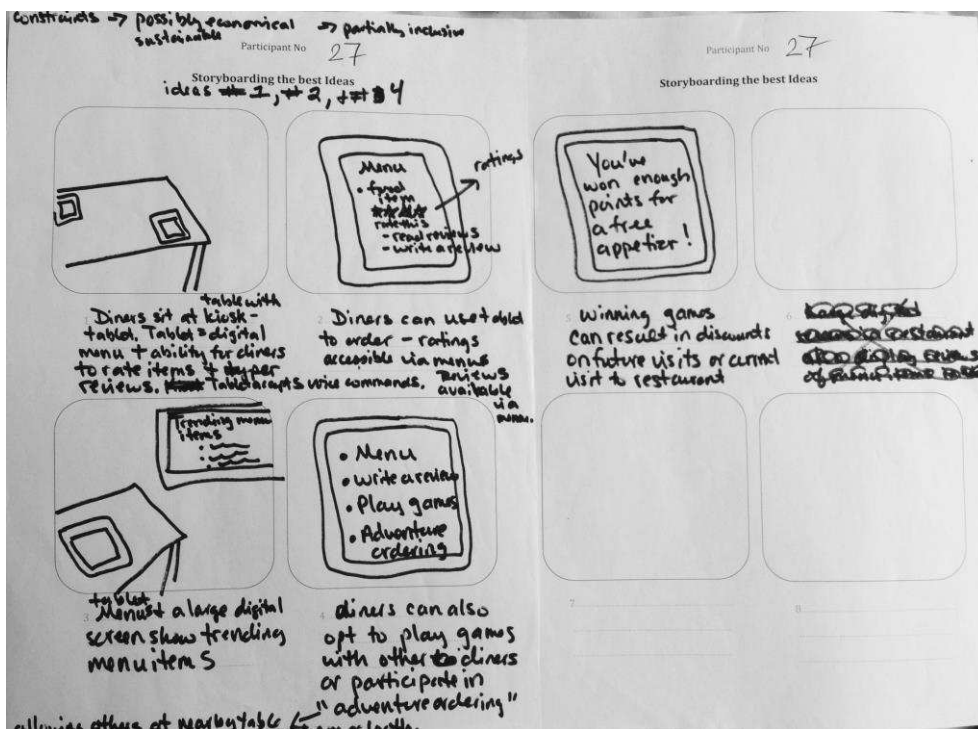 constraints → possibly economical → partially inclusive
sustainable
Participant No 27
Storyboarding the best Ideas
ideas # 1, # 2, # 4
Menu
• food
item
rate this
- read reviews
- write a review
ratings
table with
1 Diners sit at kiosk-
tablet. Tablet = digital
menu + ability for diners
to rate items + per
reviews. Tablet accepts voice commands.
2 Diners can use tablet
to order - ratings
accessible via menus
Reviews
available
via
menu.
Trending menu
items
tablet
3 Menus + a large digital
screen show trending
menu items
• Menu
• write a review
• Play games
• Adventure
ordering
4 diners can also
opt to play games
with other diners
or participate in
"adventure ordering"
allowing others at nearby table
Participant No 27
Storyboarding the best Ideas
You've
won enough
points for
a free
appetizer!
5 winning games
can result in discounts
on future visits or current
visit to restaurant
6
7
8